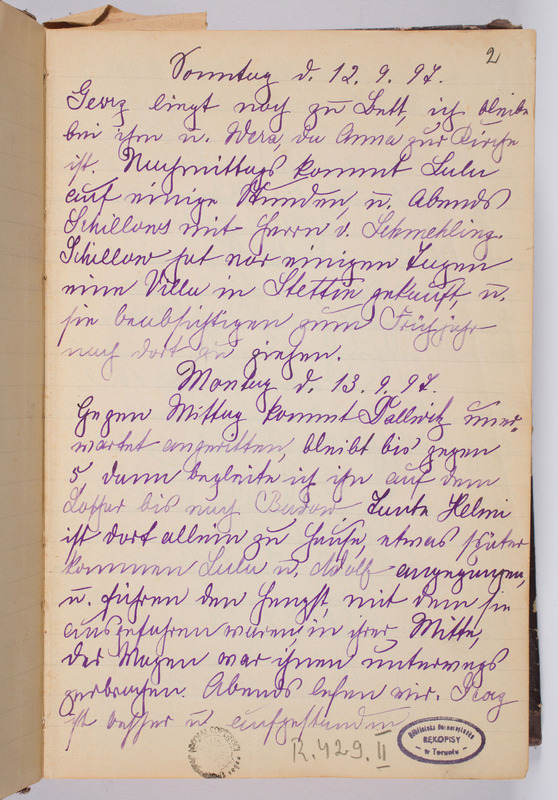 2
Sonntag d. 12. 9. 97.
Georg liegt noch zu Bett, ich bleibe
bei ihm u. Wera, da Anna zur Kirche
ist. Nachmittags kommt Lulu
auf einige Stunden, u. Abends
Schillows mit Herrn v. Schmeling.
Schillow hat vor einigen Tagen
eine Villa in Stettin gekauft, u.
sie beabsichtigen zum Frühjahr
nach dort zu ziehen.
Montag d. 13. 9. 97.
Gegen Mittag kommt Tallwitz uner-
wartet angeritten, bleibt bis gegen
5, dann begleite ich ihn auf dem
bis nach Budow. Tante Helmi
ist dort allein zu Hause, etwas später
kommen Lulu u. Adolf angegangen,
u. führen den Hengst, mit dem sie
ausgefahren waren, in ihrer Mitte,
der Wagen war ihnen unterwegs
zerbrochen. Abends lesen wir. Georg
ist besser u. aufgestanden.
R. 429. II
RĘKOPISY
w Toruniu